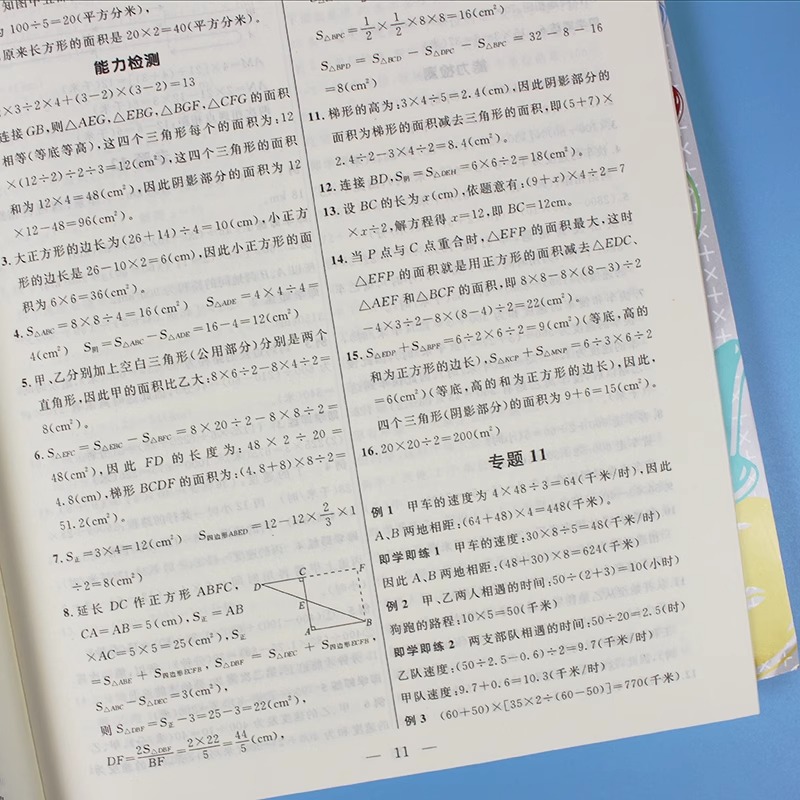 为 100÷5=20(平方分米),
原来长方形的面积是 20×2=40(平方分米)。
能力检测
×3÷2×4+(3-2)×(3-2)=13
连接GB,则△AEG,△EBG,△BGF,△CFG的面积
相等(等底等高),这四个三角形每个的面积为:12
×(12÷2)÷2÷3=12(cm²),这四个三角形的面积
和为12×4=48(cm²),因此阴影部分的面积为 12
×12-48=96(cm²)。
3.大正方形的边长为(26+14)÷4=10(cm),小正方
形的边长是26-10×2=6(cm),因此小正方形的面
积为6×6=36(cm²)。
4.S△ABC=8×8÷4=16(cm²) S△ADE=4×4÷4=
4(cm²) S阴=S△ABC-S△ADE=16-4=12(cm²)
5.甲、乙分别加上空白三角形(公用部分)分别是两个
直角形,因此甲的面积比乙大:8×6÷2-8×4÷2=
8(cm²)。
6.S△EFC=S△EBC-S△BFC=8×20÷2-8×8÷2=
48(cm²),因此 FD 的长度为:48×2÷20=
4.8(cm),梯形BCDF的面积为:(4.8+8)×8÷2=
51.2(cm²)。
7.S正=3×4=12(cm²) S四边形ABED=12-12×2/3×1
÷2=8(cm²)
8.延长 DC 作正方形 ABFC,
CA=AB=5(cm),S正=AB
×AC=5×5=25(cm²),S正
=S△ABE+S四边形ECFB,S△DBF=S△DEC+S四边形ECFB,
S△ABC-S△DEC=3(cm²),
则S△DBF=S正-3=25-3=22(cm²),
DF=2S△DBF/BF=2×22/5=44/5(cm),
D
C
F
E
A
B
S△BPC=1/2×1/2×8×8=16(cm²)
S△BPD=S△BCD-S△DPC-S△BPC=32-8-16
=8(cm²)
11.梯形的高为:3×4÷5=2.4(cm),因此阴影部分的
面积为梯形的面积减去三角形的面积,即(5+7)×
2.4÷2-3×4÷2=8.4(cm²)。
12.连接BD,S阴=S△DEH=6×6÷2=18(cm²)。
13.设BC的长为x(cm),依题意有:(9+x)×4÷2=7
×x÷2,解方程得x=12,即BC=12cm。
14.当P点与C点重合时,△EFP的面积最大,这时
△EFP的面积就是用正方形的面积减去△EDC、
△AEF和△BCF的面积,即8×8-8×(8-3)÷2
-4×3÷2-8×(8-4)÷2=22(cm²)。
15.S△EDP+S△BPF=6÷2×6÷2=9(cm²)(等底,高的
和为正方形的边长),S△KCP+S△MNP=6÷3×6÷2
=6(cm²)(等底,高的和为正方形的边长),因此,
四个三角形(阴影部分)的面积为9+6=15(cm²)。
16.20×20÷2=200(m²)
专题11
例1 甲车的速度为4×48÷3=64(千米/时),因此
A、B两地相距:(64+48)×4=448(千米)。
即学即练1 甲车的速度:30×8÷5=48(千米/时)
因此A、B两地相距:(48+30)×8=624(千米)
例2 甲、乙两人相遇的时间:50÷(2+3)=10(小时)
狗跑的路程:10×5=50(千米)
即学即练2 两支部队相遇的时间:50÷20=2.5(时)
乙队速度:(50÷2.5-0.6)÷2=9.7(千米/时)
甲队速度:9.7+0.6=10.3(千米/时)
例3 (60+50)×[35×2÷(60-50)]=770(千米)
— 11 —